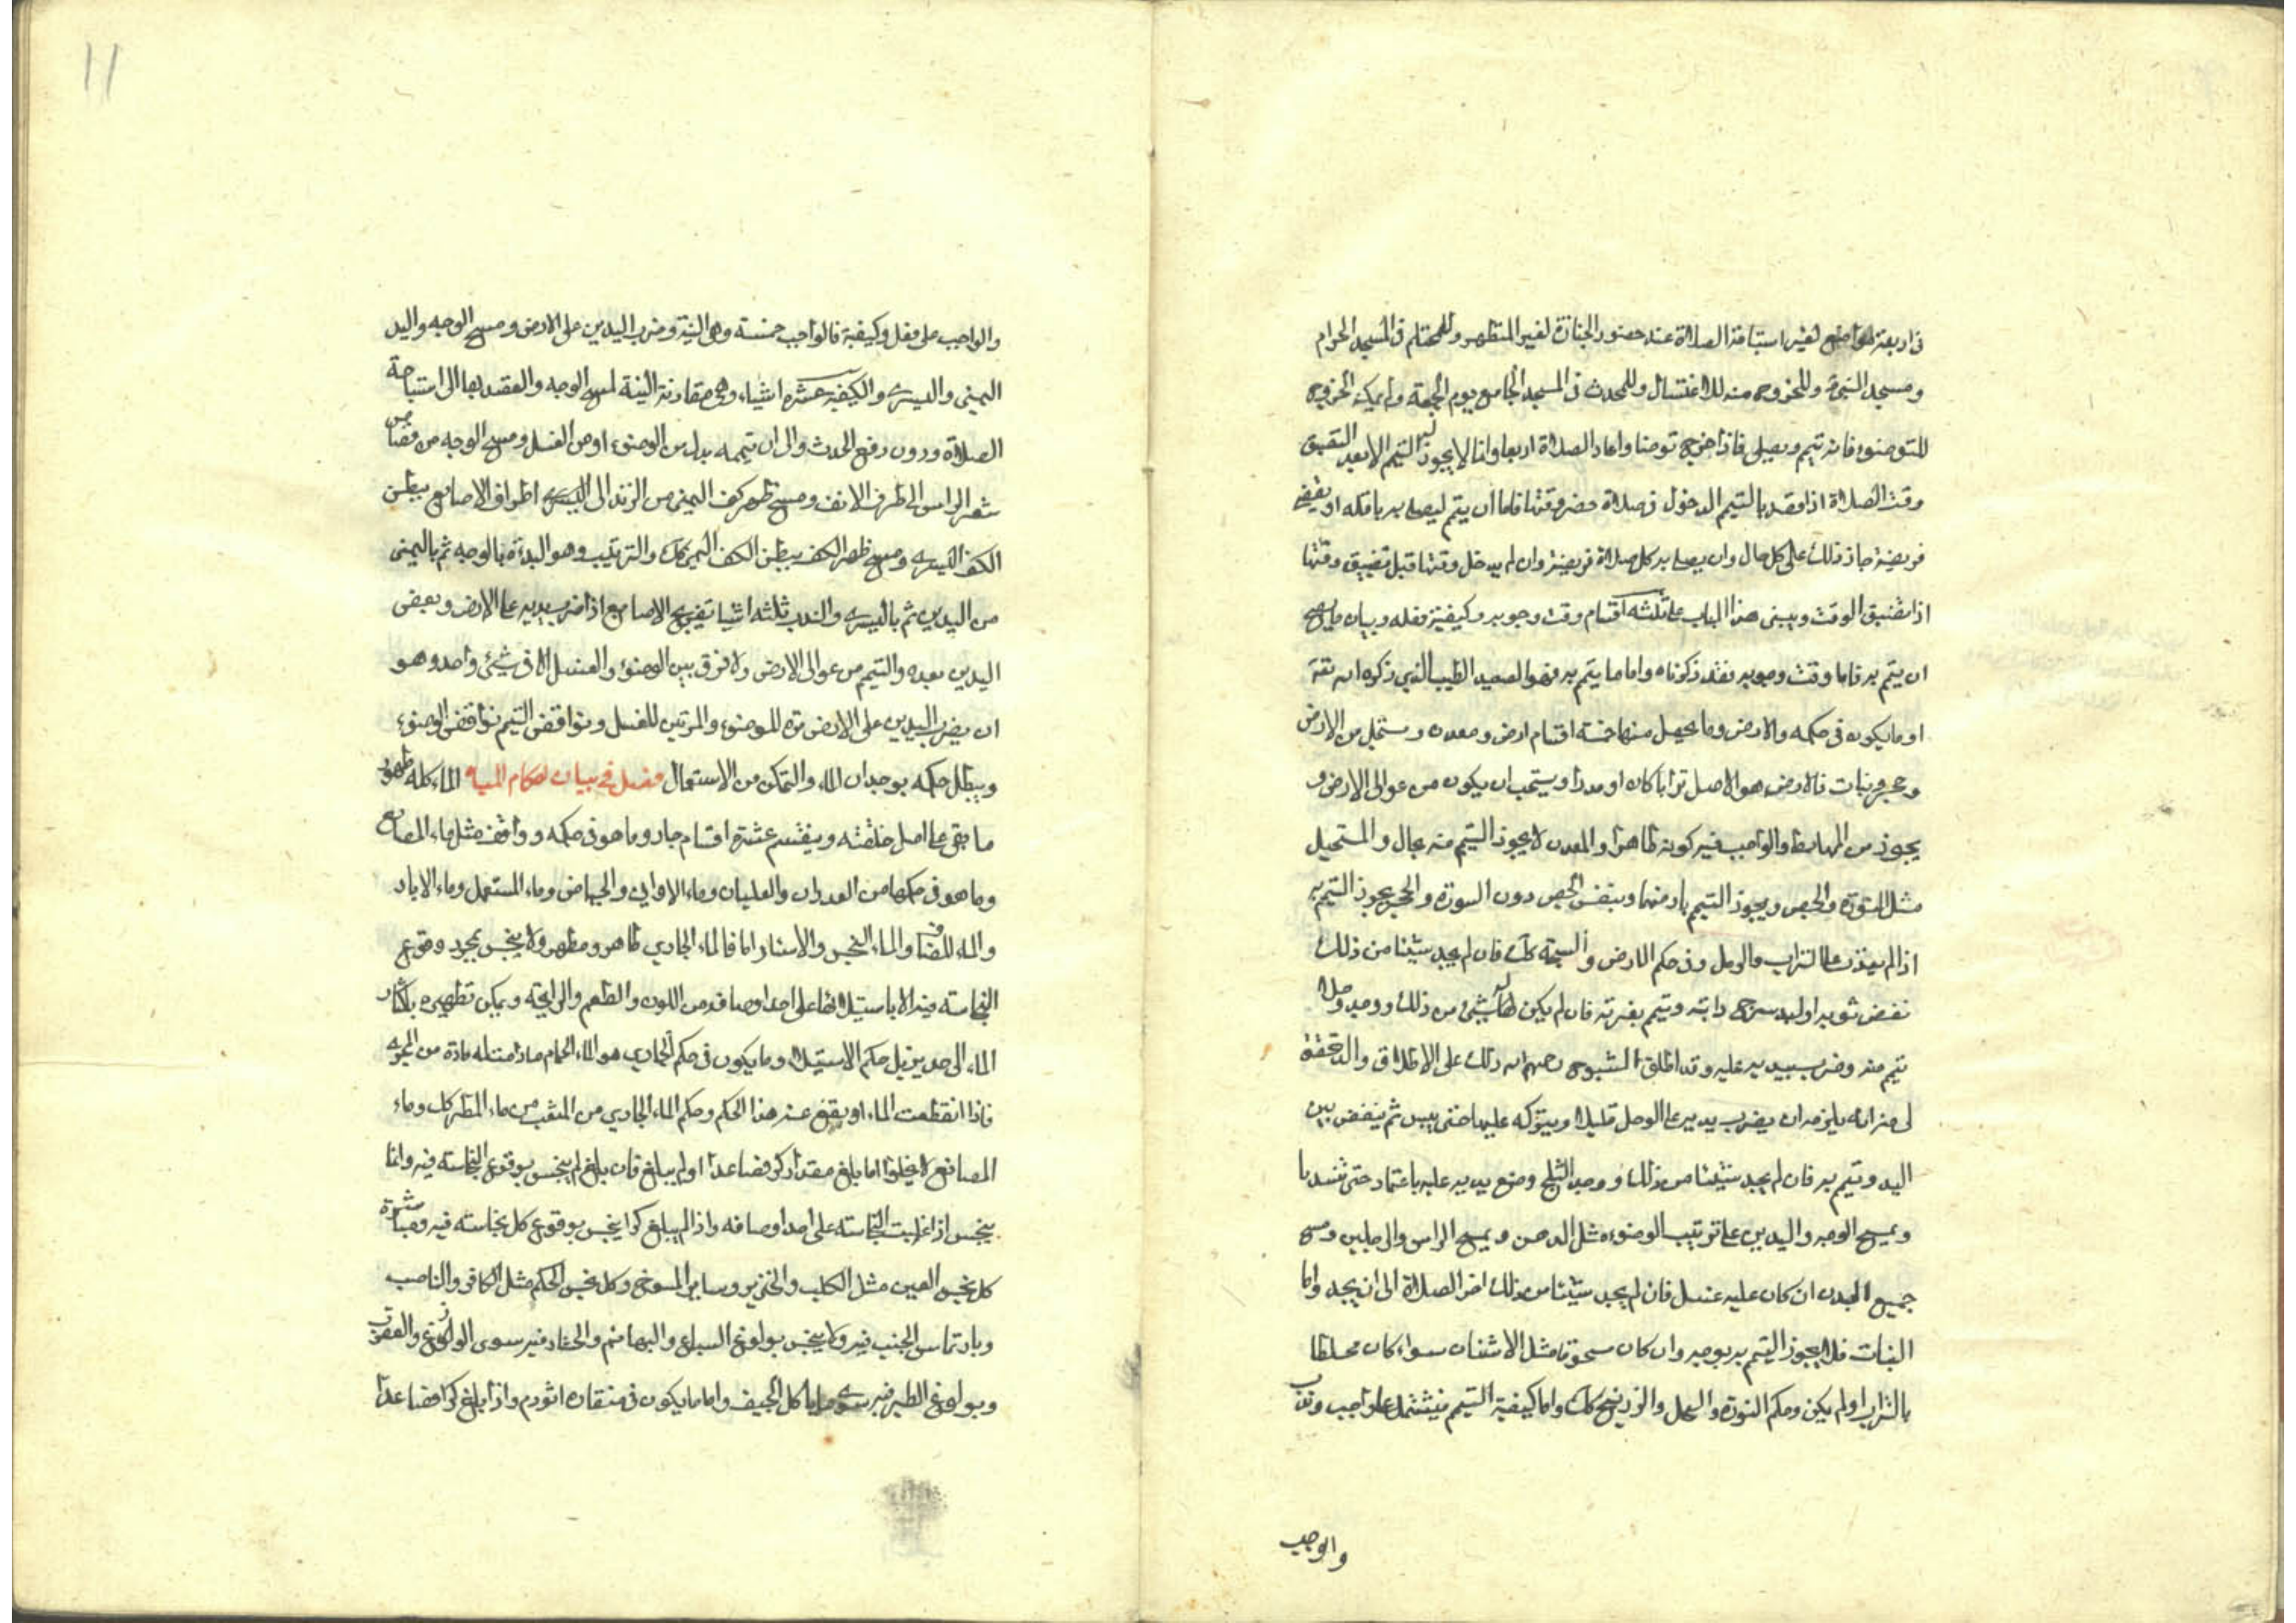 في اربعة مواضع لغير استباحة الصلاة عند حضور الجنازة لغير المتطهر وللمحتلم في المسجد الحرام
ومسجد النبي وللخروج منه للاغتسال وللمحدث في المسجد الجامع يوم الجمعة ولم يمكنه الخروج
للتوضوء فانه تيمم ويصلي فاذا خرج توضا واعاد الصلاة اربعا وانما لا يجوز التيمم الا بعد التضيق
وقت الصلاة اذا قصد بالتيمم الدخول في صلاة حضر وقتها فاما ان يتيمم ليصلي به نافلة او يقضي
فريضة جاز ذلك على كل حال وان يصلي به كل صلاة فريضة وان لم يدخل وقتها قبل تضييق وقتها
اذا تضيق الوقت ويبنى هذا الباب على ثلثه اقسام وقت وجوبه وكيفية فعله وبيان ما يصح
ان يتيمم به فاما وقت وجوبه فقد ذكرناه واما ما يتيمم به فهو الصعيد الطيب الذي ذكره الله تعه
او ما يكون في حكمه والارض وما يحصل منها خمسة اقسام ارض ومعدن ومستحيل من الارض
وحجر ونبات فالارض هو الاصل ترابا كان او مدرا ويستحب ان يكون من عوالي الارض و
يجوز من المهابط والواجب فيه كونه طاهرا والمعدن لا يجوز التيمم منه بحال والمستحيل
مثل النورة والجص ويجوز التيمم بارضها وبنفس الجص دون النورة والحجر يجوز التيمم به
اذا لم يقدر على التراب والرمل في حكم الارض والسبخة كك فان لم يجد شيئا من ذلك
نفض ثوبه او لبد سرج دابته وتيمم بغبرته فان لم يكن له شيئ من ذلك ووجد وحلا
تيمم منه وضرب بيديه عليه وقد اطلق الشيوخ رحمهم الله ذلك على الاطلاق والذي تحقق
لي منه انه يلزمه ان يضرب يديه على الوحل قليلا ويتركه عليها حتى ييبس ثم ينفض بين
اليد وتيمم به فان لم يجد شيئا من ذلك ووجد الثلج وضع يديه عليه باعتماد حتى تنديا
ويمسح الوجه واليدين على ترتيب الوضوء مثل الدهن ويمسح الراس والرجلين ومسح
جميع البدن ان كان عليه غسل فان لم يجد شيئا من ذلك اخر الصلاة الى ان يجد واما
النبات فلا يجوز التيمم به بوجه وان كان مسحوقا مثل الاشنان سواء كان مخلطا
بالتراب او لم يكن وحكم النورة والكحل والزرنيخ كك واما كيفية التيمم فيشتمل على واجب وندب
والواجب
11
والواجب على فعل وكيفية فالواجب خمسة وهي النية وضرب اليدين على الارض ومسح الوجه واليد
اليمنى واليسرى والكيفية عشره اشياء وهي مقارنة النية لمسح الوجه والقصد بها الى استباحة
الصلاة دون رفع الحدث والى ان تيممه بدل من الوضوء او من الغسل ومسح الوجه من قصاص
شعر الراس الى طرف الانف ومسح ظهر كف اليمنى من الزند الى اطراف الاصابع ببطن
الكف اليسرى ومسح ظهر الكف ببطن الكف اليمنى كك والترتيب وهو البدأة بالوجه ثم باليمنى
من اليدين ثم باليسرى والندب ثلثه اشيا تفريج الاصابع اذا ضرب بيديه على الارض ونفض
اليدين بعده والتيمم من عوالي الارض ولا فرق بين الوضوء والغسل الا في شيئ واحد وهو
ان يضرب اليدين على الارض مرة للوضوء والمرتين للغسل ونواقض التيمم نواقض الوضوء
ويبطل حكمه بوجدان الماء والتمكن من الاستعمال فصل في بيان احكام المياه الماء كله طهور
ما بقي على اصل خلقته وينقسم عشرة اقسام جار وما هو في حكمه وواقف مثل ماء المصانع
وما هو في حكمها من الغدران والقلبان وماء الاواني والحياض وماء المستعمل وماء الابار
والماء المضاف والماء النجس والاسئار اما فالماء الجاري طاهر ومطهر ولا ينجس بمجرد وقوع
النجاسة فيه الا باستيلائها على احد اوصافه من اللون والطعم والرايحة ويمكن تطهيره باكثار
الماء الى حد يزيل حكم الاستيلاء وما يكون في حكم الجاري هو الماء الحمام ما دامت له مادة من المجرى
فاذا انقطعت الماء ارتفع عنه هذا الحكم وحكم الماء الجاري من المثعب من ماء المطر كك وماء
المصانع لا يخلوا اما بلغ مقدار كر فصاعدا او لم يبلغ فان بلغ لم ينجس بوقوع النجاسة فيه وانما
ينجس اذا غلبت النجاسة على احد اوصافه واذا لم يبلغ كرا ينجس بوقوع كل نجاسة فيه ومباشرة
كل نجس العين مثل الكلب والخنزير وساير المسوخ وكل نجس الحكم مثل الكافر والناصب
وبارتماس الجنب فيه ولا ينجس بولوغ السباع والبهائم والحشار فيه سوى الوزغ والعقرب
وبولوغ الطير فيه سوى ما ياكل الجيف واما ما يكون في منقاره اثر دم واذا بلغ كرا فصاعدا